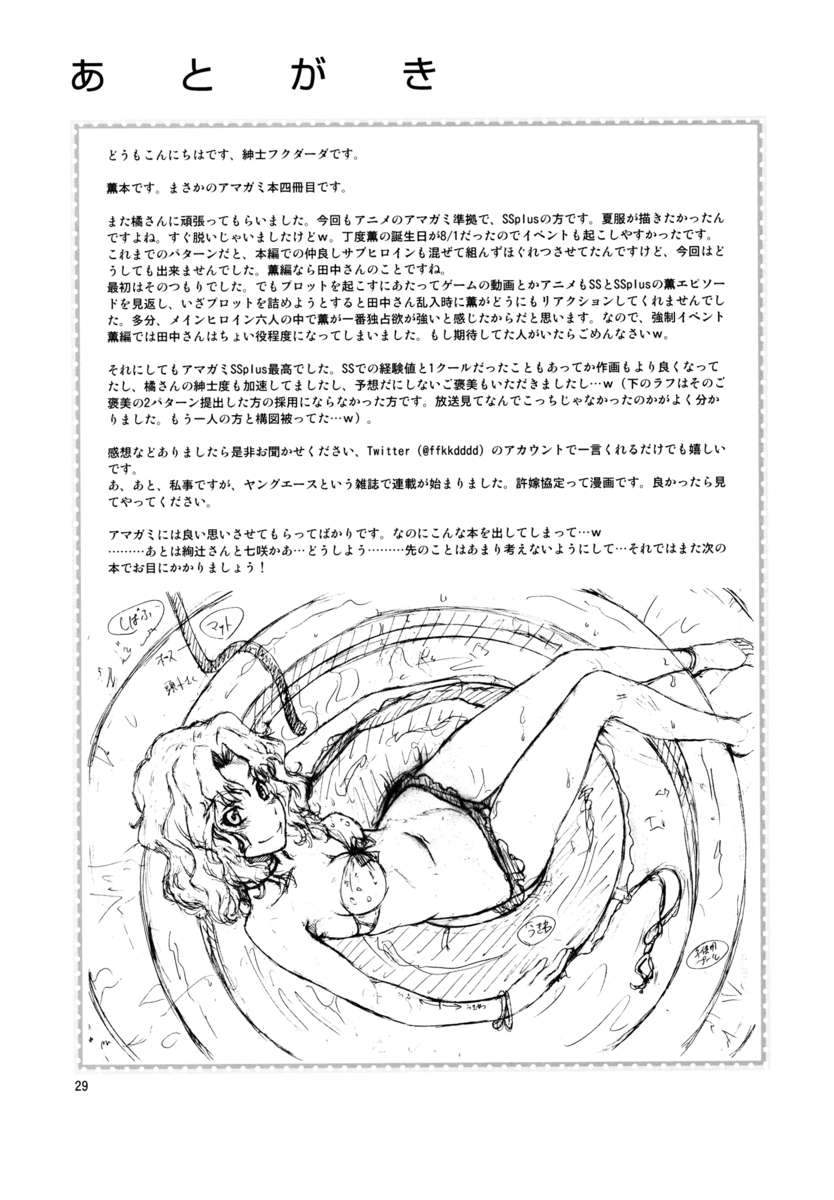 あとがき
どうもこんにちはです、紳士フクダーダです。
薫本です。まさかのアマガミ本四冊目です。
また橘さんに頑張ってもらいました。今回もアニメのアマガミ準拠で、SSplusの方です。夏服が描きたかったん
ですよね。すぐ脱いじゃいましたけどw。丁度薫の誕生日が8/1だったのでイベントも起こしやすかったです。
これまでのパターンだと、本編での仲良しサブヒロインも混ぜて組んずほぐれつさせてたんですけど、今回はど
うしても出来ませんでした。薫編なら田中さんのことですね。
最初はそのつもりでした。でもプロットを起こすにあたってゲームの動画とかアニメもSSとSSplusの薫エピソー
ドを見返し、いざプロットを詰めようとすると田中さん乱入時に薫がどうにもリアクションしてくれませんでし
た。多分、メインヒロイン六人の中で薫が一番独占欲が強いと感じたからだと思います。なので、強制イベント
薫編では田中さんはちょい役程度になってしまいました。もし期待してた人がいたらごめんなさいw。
それにしてもアマガミSSplus最高でした。SSでの経験値と1クールだったこともあってか作画もより良くなって
たし、橘さんの紳士度も加速してましたし、予想だにしないご褒美もいただきましたし…w(下のラフはそのご
褒美の2パターン提出した方の採用にならなかった方です。放送見てなんでこっちじゃなかったのかがよく分か
りました。もう一人の方と構図被ってた…w)。
感想などありましたら是非お聞かせください、Twitter(@ffkkdddd)のアカウントで一言くれるだけでも嬉しい
です。
あ、あと、私事ですが、ヤングエースという雑誌で連載が始まりました。許嫁協定って漫画です。良かったら見
てやってください。
アマガミには良い思いさせてもらってばかりです。なのにこんな本を出してしまって…w
………あとは絢辻さんと七咲かあ…どうしよう………先のことはあまり考えないようにして…それではまた次の
本でお目にかかりましょう!
しばふ
マット
ホース
うきわ
うきわ
29